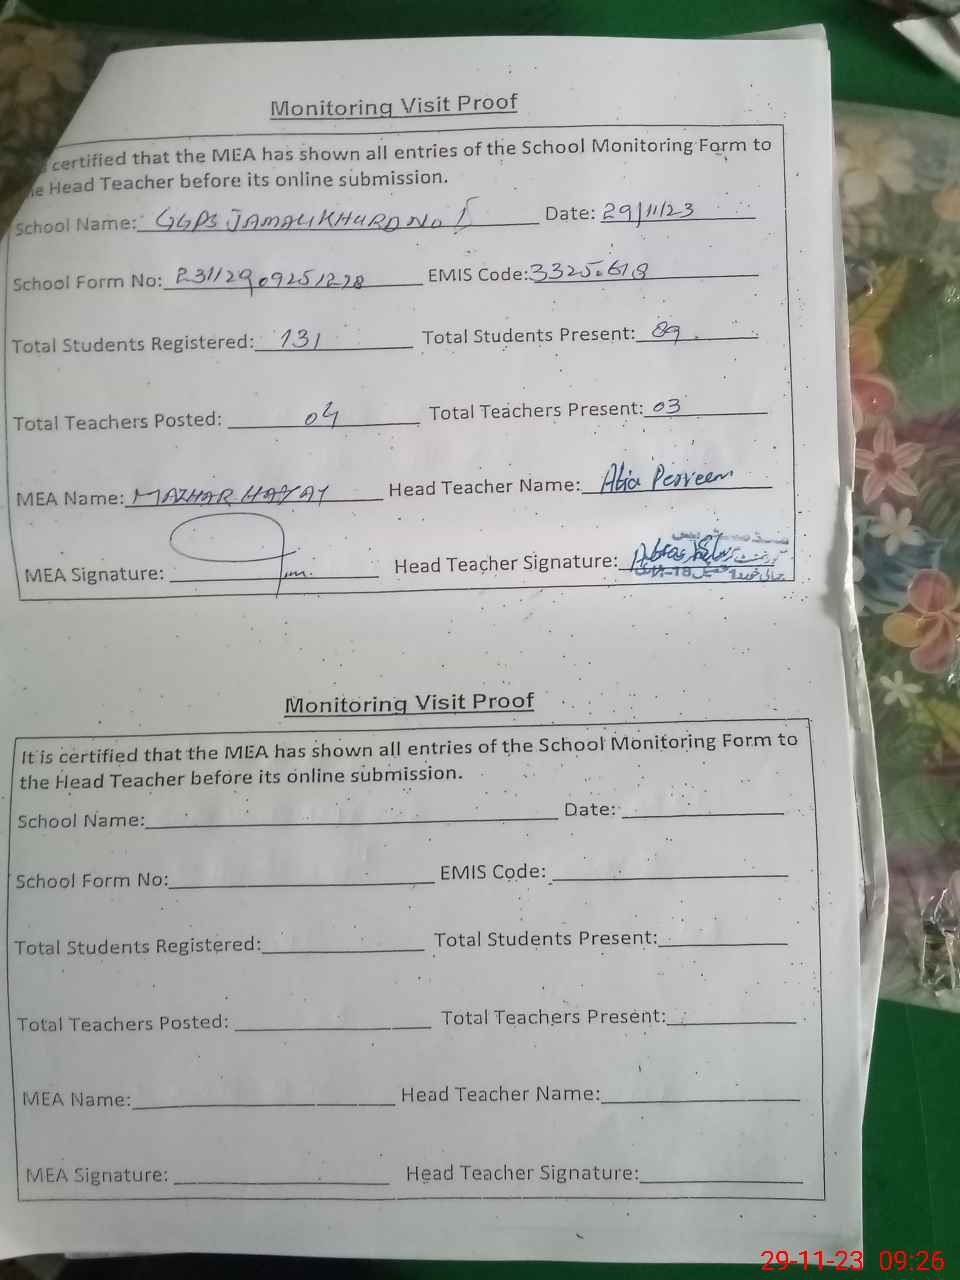 Monitoring Visit Proof
certified that the MEA has shown all entries of the School Monitoring Form to
Head Teacher before its online submission.
School Name: GGPS JAMALIKHURD No 1 Date: 29/11/23
School Form No: 23112909251228 EMIS Code:
Total Students Registered: 131 Total Students Present: 89
Total Teachers Posted: 04 Total Teachers Present: 03
MEA Name: MAZHAR HAYAT Head Teacher Name: Perveen
MEA Signature: Head Teacher Signature:
Monitoring Visit Proof
It is certified that the MEA has shown all entries of the School Monitoring Form to
the Head Teacher before its online submission.
School Name: Date:
School Form No: EMIS Code:
Total Students Registered: Total Students Present:
Total Teachers Posted: Total Teachers Present:
MEA Name: Head Teacher Name:
MEA Signature: Head Teacher Signature:
29-11-23 09:26